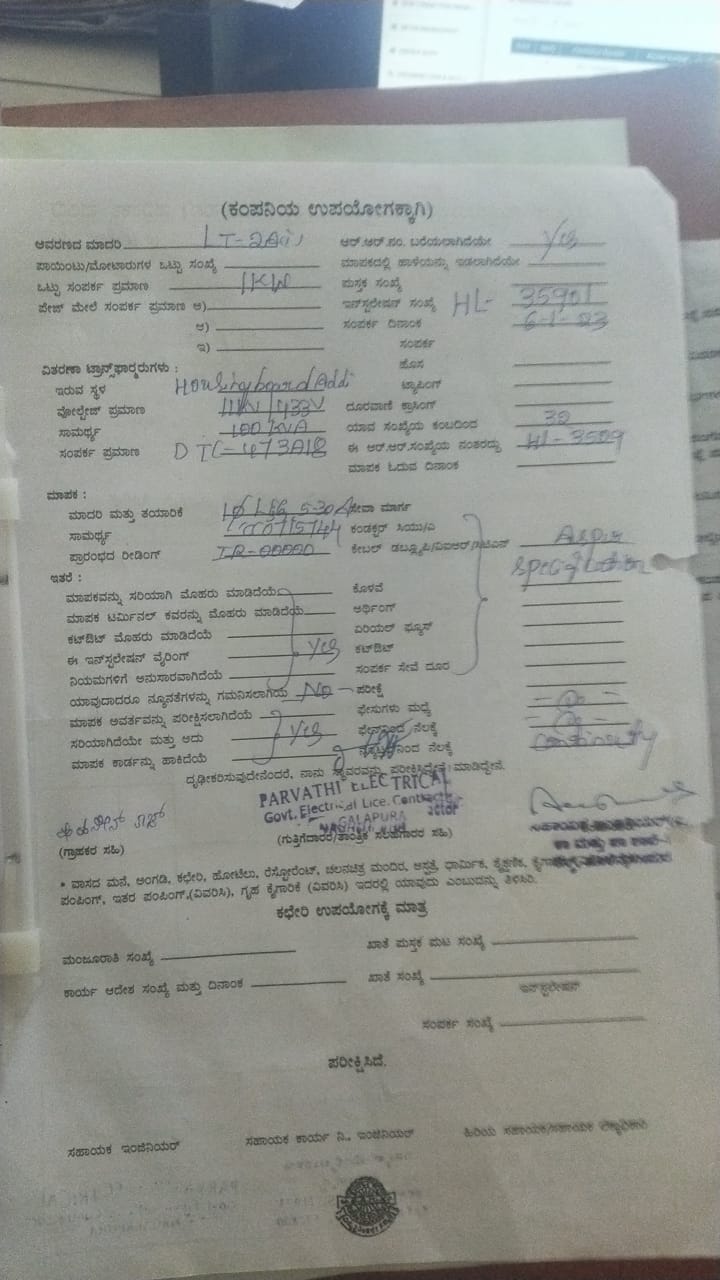 (ಕಂಪನಿಯ ಉಪಯೋಗಕ್ಕಾಗಿ)
ಆವರಣದ ಮಾದರಿ LT-2A(i) ಆರ್.ಆರ್.ನಂ. ಬರೆಯಲಾಗಿದೆಯೇ Yes
ಪಾಯಿಂಟು/ಮೋಟಾರುಗಳ ಒಟ್ಟು ಸಂಖ್ಯೆ ಮಾಪಕದಲ್ಲಿ ಹಾಳೆಯನ್ನು ಇಡಲಾಗಿದೆಯೇ
ಒಟ್ಟು ಸಂಪರ್ಕ ಪ್ರಮಾಣ 1KW ಪುಸ್ತಕ ಸಂಖ್ಯೆ
ಪೇಜ್ ಮೇಲೆ ಸಂಪರ್ಕ ಪ್ರಮಾಣ ಅ) ಇನ್‌ಸ್ಟಲೇಷನ್ ಸಂಖ್ಯೆ HL- 35901
ಆ) ಸಂಪರ್ಕ ದಿನಾಂಕ 6-1-23
ಇ) ಸಂಪರ್ಕ
ವಿತರಣಾ ಟ್ರಾನ್ಸ್‌ಫಾರ್ಮರುಗಳು : ಹೊಸ
ಇರುವ ಸ್ಥಳ Housing board Addi ಟ್ಯಾಪಿಂಗ್
ವೋಲ್ಟೇಜ್ ಪ್ರಮಾಣ 11KV/433V ದೂರವಾಣಿ ಕ್ರಾಸಿಂಗ್
ಸಾಮರ್ಥ್ಯ 100 KVA ಯಾವ ಸಂಖ್ಯೆಯ ಕಂಬದಿಂದ 30
ಸಂಪರ್ಕ ಪ್ರಮಾಣ DTC-473A18 ಈ ಆರ್.ಆರ್.ಸಂಖ್ಯೆಯ ನಂತರದ್ದು HL-3509
ಮಾಪಕ ಓದುವ ದಿನಾಂಕ
ಮಾಪಕ :
ಮಾದರಿ ಮತ್ತು ತಯಾರಿಕೆ 5-30A ಸೇವಾ ಮಾರ್ಗ
ಸಾಮರ್ಥ್ಯ ಕಂಡಕ್ಟರ್ ಸಿಯು/ಎ
ಪ್ರಾರಂಭದ ರೀಡಿಂಗ್ IR-00000 ಕೇಬಲ್
ಇತರೆ :
ಮಾಪಕವನ್ನು ಸರಿಯಾಗಿ ಮೊಹರು ಮಾಡಿದೆಯೆ ಕೊಳವೆ
ಮಾಪಕ ಟರ್ಮಿನಲ್ ಕವರನ್ನು ಮೊಹರು ಮಾಡಿದೆಯೆ ಅರ್ಥಿಂಗ್
ಕಟ್‌ಔಟ್ ಮೊಹರು ಮಾಡಿದೆಯೆ ಏರಿಯಲ್ ಫ್ಯೂಸ್
ಈ ಇನ್‌ಸ್ಟಲೇಷನ್ ವೈರಿಂಗ್ Yes ಕಟ್‌ಔಟ್
ನಿಯಮಗಳಿಗೆ ಅನುಸಾರವಾಗಿದೆಯೆ ಸಂಪರ್ಕ ಸೇವೆ ದೂರ
ಯಾವುದಾದರೂ ನ್ಯೂನತೆಗಳನ್ನು ಗಮನಿಸಲಾಗಿದೆಯೆ No ಪರೀಕ್ಷೆ
ಮಾಪಕ ಅವರ್ತವನ್ನು ಪರೀಕ್ಷಿಸಲಾಗಿದೆಯೆ ಫೇಸುಗಳು ಮಧ್ಯೆ
ಸರಿಯಾಗಿದೆಯೇ ಮತ್ತು ಅದು Yes ಫೇಸಿನಿಂದ ನೆಲಕ್ಕೆ
ಮಾಪಕ ಕಾರ್ಡನ್ನು ಹಾಕಿದೆಯೆ ನ್ಯೂಟ್ರಲ್‌ನಿಂದ ನೆಲಕ್ಕೆ continuity
ದೃಢೀಕರಿಸುವುದೇನೆಂದರೆ, ನಾನು ಈ ವಿವರವನ್ನು ಪರೀಕ್ಷಿಸಿದ್ದೇನೆ/ಮಾಡಿದ್ದೇನೆ.
PARVATHI ELECTRICAL
Govt. Electrical Lice. Contractor
(ಗ್ರಾಹಕರ ಸಹಿ) (ಗುತ್ತಿಗೆದಾರರ/ತಾಂತ್ರಿಕ ಸಲಹೆಗಾರರ ಸಹಿ)
• ವಾಸದ ಮನೆ, ಅಂಗಡಿ, ಕಛೇರಿ, ಹೋಟೆಲು, ರೆಸ್ಟೋರೆಂಟ್, ಚಲನಚಿತ್ರ ಮಂದಿರ, ಆಸ್ಪತ್ರೆ, ಧಾರ್ಮಿಕ, ಶೈಕ್ಷಣಿಕ,
ಪಂಪಿಂಗ್, ಇತರ ಪಂಪಿಂಗ್,(ವಿವರಿಸಿ), ಗೃಹ ಕೈಗಾರಿಕೆ (ವಿವರಿಸಿ) ಇದರಲ್ಲಿ ಯಾವುದು ಎಂಬುದನ್ನು ತಿಳಿಸಿರಿ.
ಕಛೇರಿ ಉಪಯೋಗಕ್ಕೆ ಮಾತ್ರ
ಮಂಜೂರಾತಿ ಸಂಖ್ಯೆ ಖಾತೆ ಪುಸ್ತಕ ಪುಟ ಸಂಖ್ಯೆ
ಕಾರ್ಯ ಆದೇಶ ಸಂಖ್ಯೆ ಮತ್ತು ದಿನಾಂಕ ಖಾತೆ ಸಂಖ್ಯೆ
ಇನ್‌ಸ್ಟಲೇಷನ್
ಸಂಪರ್ಕ ಸಂಖ್ಯೆ
ಪರೀಕ್ಷಿಸಿದೆ.
ಸಹಾಯಕ ಇಂಜಿನಿಯರ್ ಸಹಾಯಕ ಕಾರ್ಯ ನಿ., ಇಂಜಿನಿಯರ್ ಹಿರಿಯ ಸಹಾಯಕ/ಸಹಾಯಕ ಲೆಕ್ಕಾಧಿಕಾರಿ